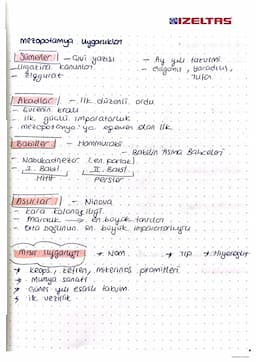 İZELTAŞ
mezopotamya uygarlıkları
Sümerler - Çivi yazısı - Ay yılı takvimi
- Urgakina kanunları - Gılgamış, yaradılış,
- Ziggurat tufan
Akadlar - İlk düzenli ordu
- Evrenin kralı
- İlk güçlü imparatorluk
- mezopotamya'ya egemen olan ilk
Babiller - Hammurabi
- Babilin Asma Bahçeleri
- Nabukadnezar (en parlak)
I. Babil II. Babil
Hitit Persler
Asurlar - Ninova
- kara kolonyciliği
- Marduk → en büyük tanrıları
- Orta doğunun en büyük imparatorluğu
Mısır Uygarlığı → Nom → Tıp → Hiyeroglif
→ keops, kefren, mikerinos piramitleri
→ Mumya sanatı
→ Güneş yılı esaslı takvim
→ ilk vezirlik